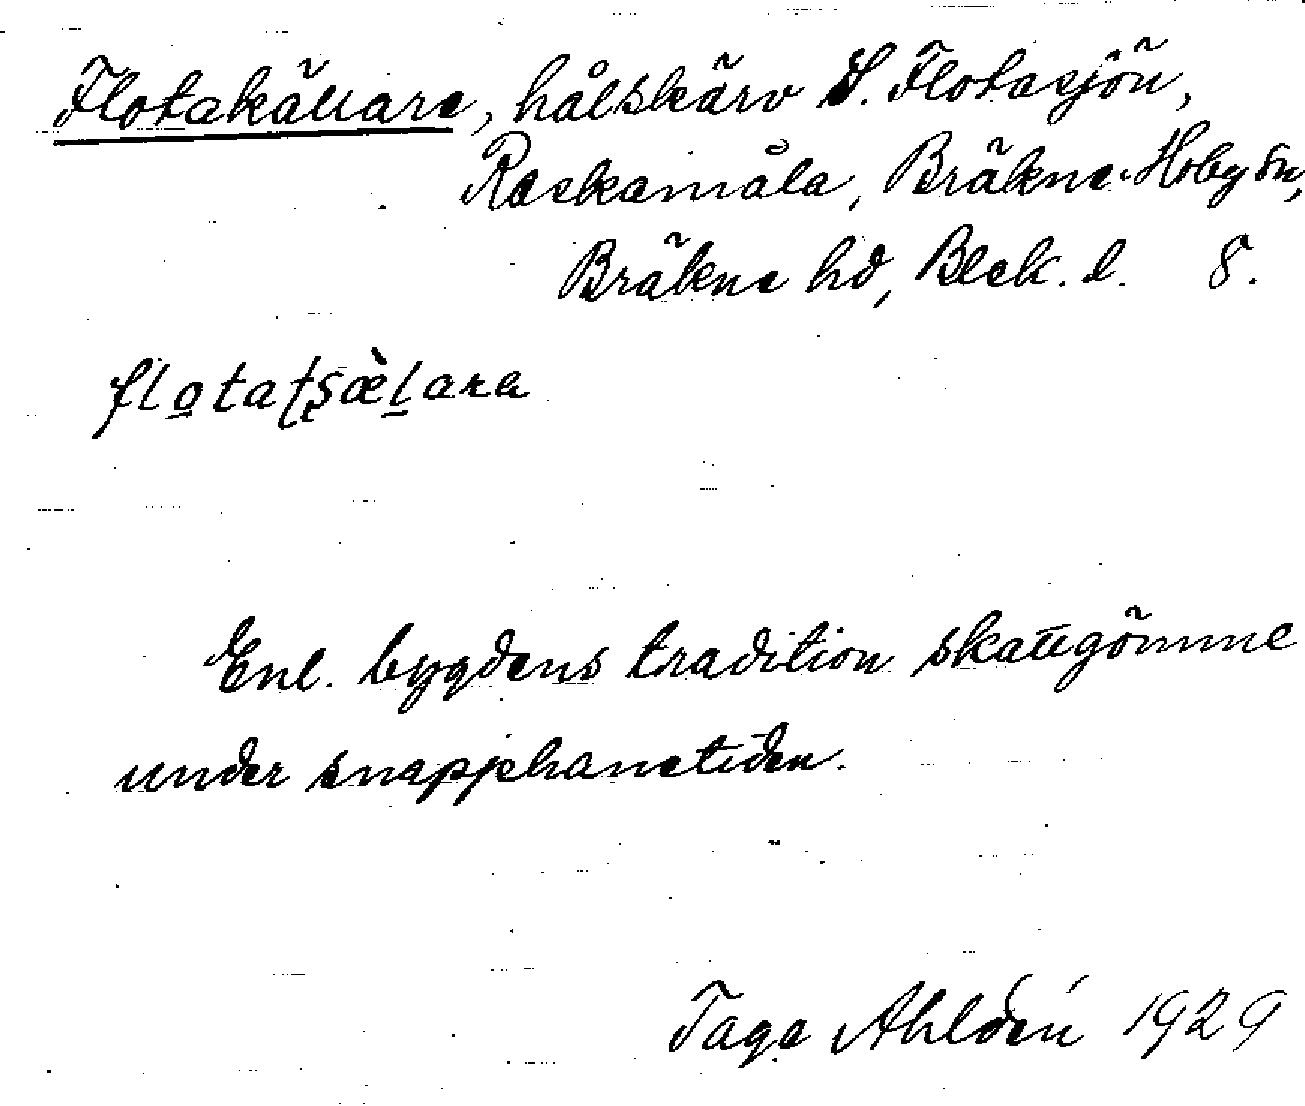 Flotakällare, hålskärv S. Flotasjön,
Raskamåla, Bräkne-Hoby sn,
Bräkne hd, Blek. l. 8.
flo̲tatʂæ̀l̲ara
Enl. bygdens tradition skattgömme
under snapphanetiden.
Tage Ahldén 1929